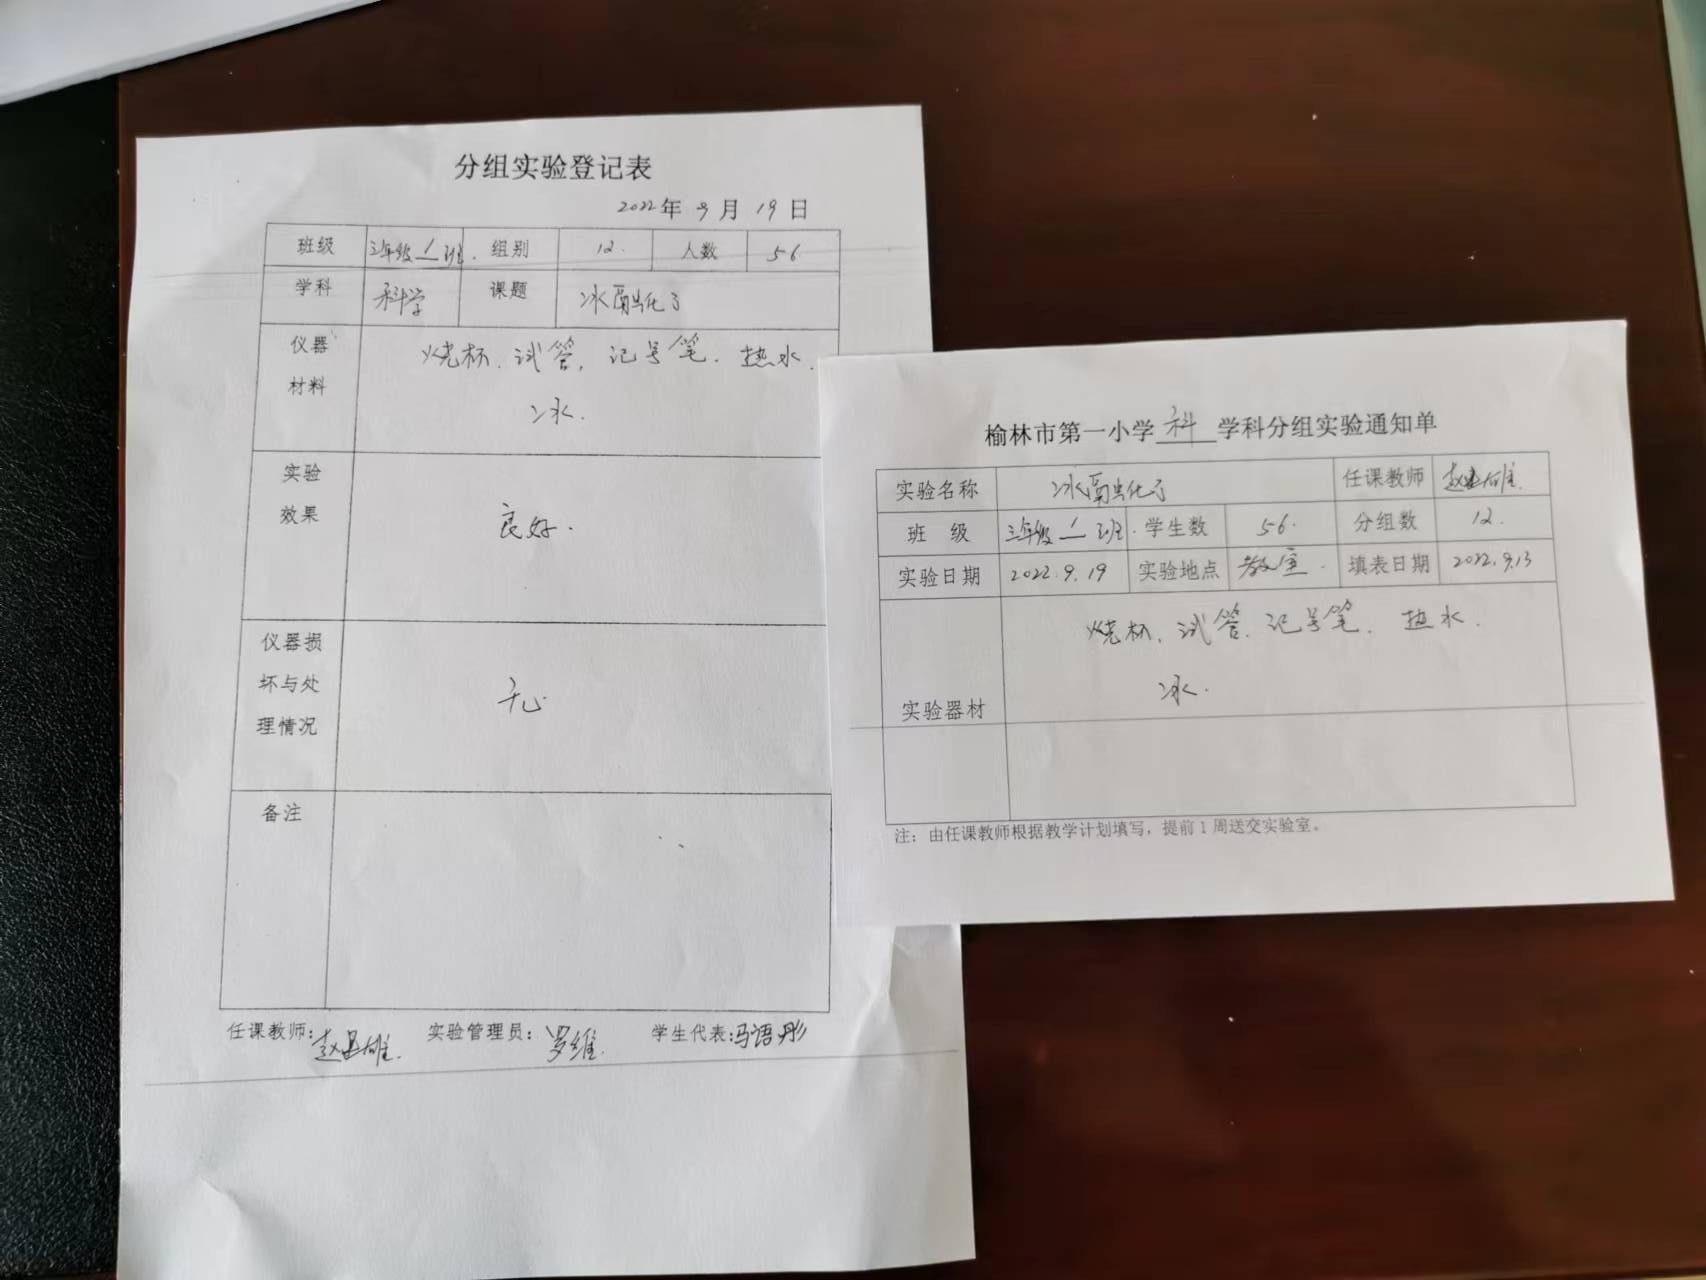 分组实验登记表
2022年 9月 19日
班级 三年级 1 班. 组别 12. 人数 56
学科 科学 课题 冰融化了
仪器材料 烧杯、试管、记号笔、热水、
冰.
实验效果 良好.
仪器损坏与处理情况 无
备注
任课教师: 赵 雄. 实验管理员: 罗维. 学生代表:马语彤
榆林市第一小学 科 学科分组实验通知单
实验名称 冰融化了 任课教师 赵 雄.
班 级 三年级 1 班. 学生数 56. 分组数 12.
实验日期 2022.9.19 实验地点 教室. 填表日期 2022.9.13
实验器材 烧杯、试管、记号笔、热水.
冰.
注：由任课教师根据教学计划填写，提前1周送交实验室。